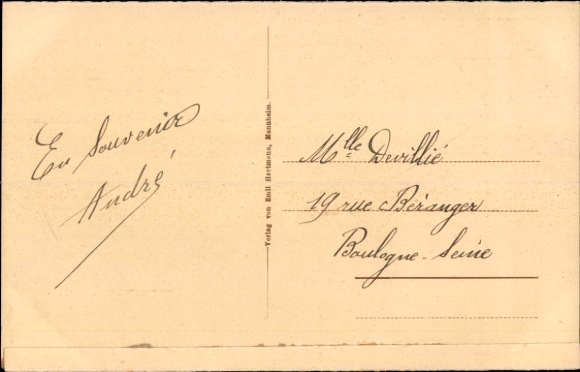 En Souvenir
André
Verlag von Emil Hartmann, Mannheim.
Mlle Devillié
19 rue Béranger
Boulogne-Seine